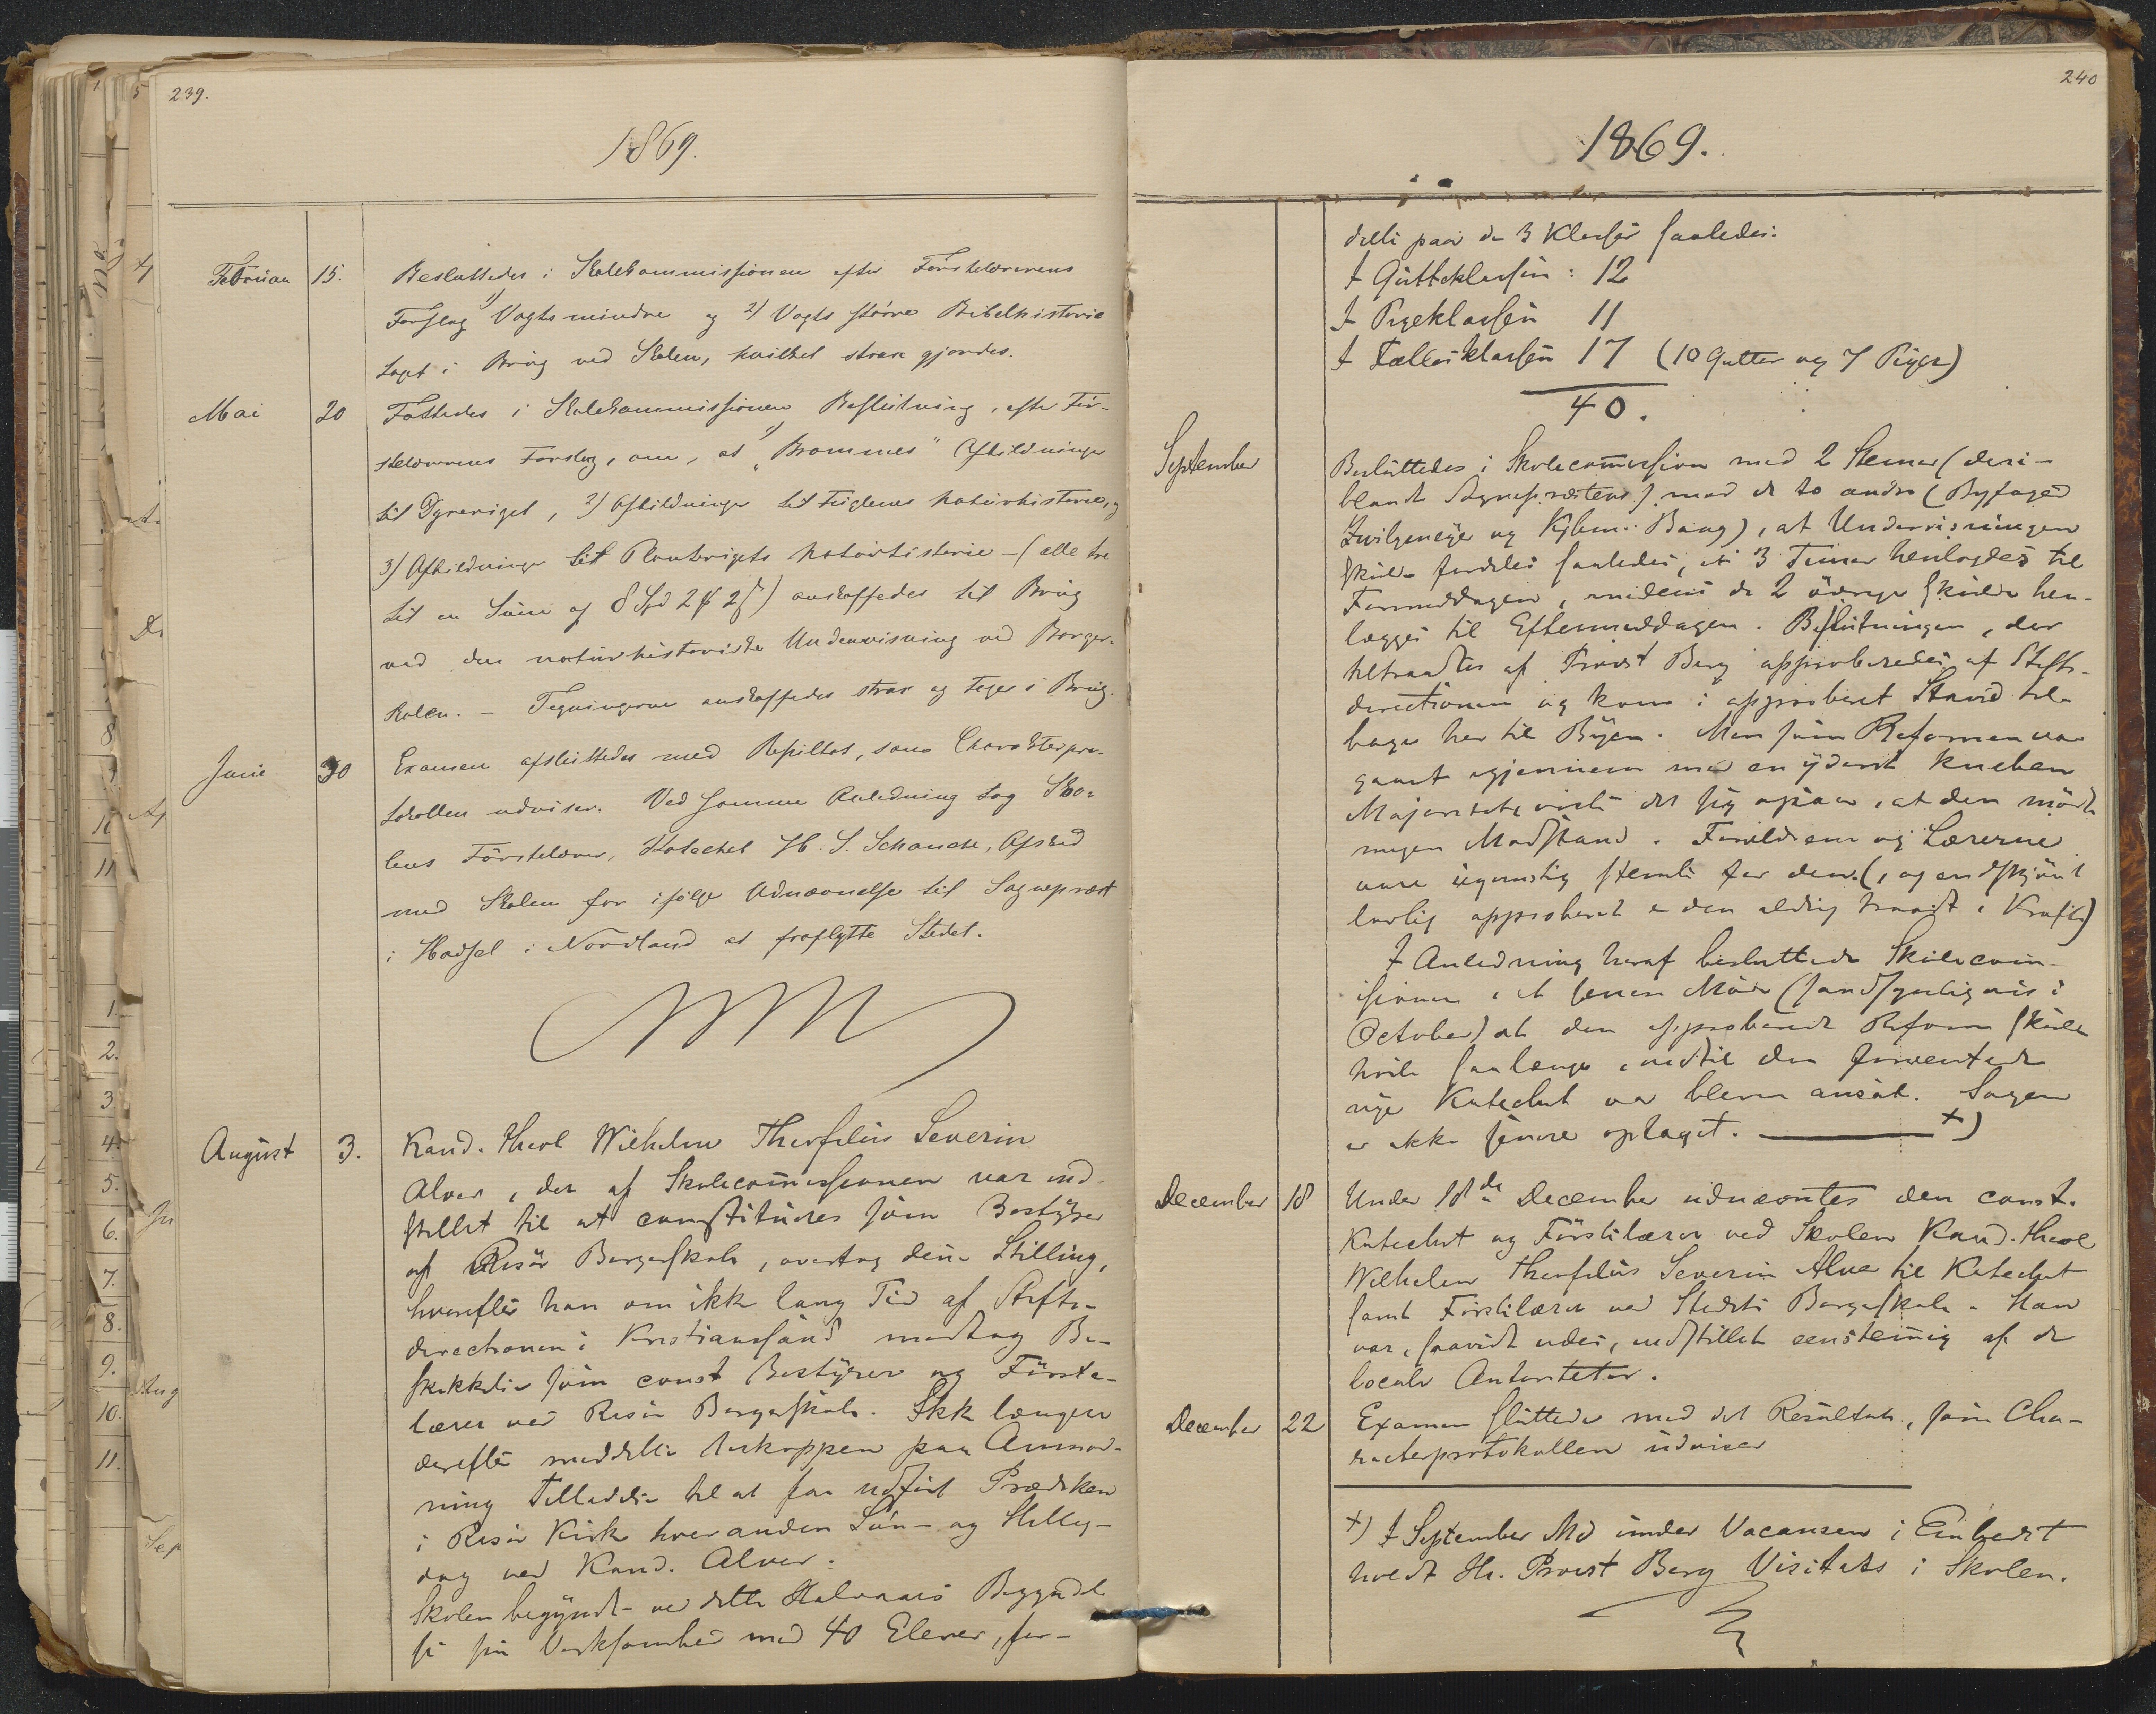 239.
1869.
Februar 15. Besluttedes i Skolekommissionen efter Førstelærerens
Forslag 1) Vogts mindre og 2) Vogts større Bibelhistorie
tagt i Brug ved Skolen, hvilket strax gjordes.
Mai 20 Fattedes i Skolekommissionen Beslutning, efter För-
stelærerens Forslag, om, at 1) "Brommes" Afbildninger
til Dyreriget, 2) Afbildninger til Fuglenes Naturhistorie, og
3) Afbildninger til Planterigets Naturhistorie - (alle tre
til en Sum af 8 Spd 2 # 2 ß) anskaffedes til Brug
ved den naturhistoriske Undervisning ved Borger-
skolen. - Tegningerne anskaffedes strax og toges i Brug.
Juni 30 Examen afsluttedes med Resultat, som Charakterpro-
tokollen udviser. Ved samme Anledning tog Sko-
lens Förstelærer, Katechet H. S. Schanche, Afsked
med Skolen for ifölge Udnævnelse til Sognepræst
i Hadsel i Nordland at fraflytte Stedet.
August 3. Kand. theol Wilhelm Theofilus Severin
Alver, der af Skolecommissionen var ind-
stillet til at constitueres som Bestyrer
af Risör Borgerskole, overtog denne Stilling,
hvorefter han om ikke lang Tid af Stifts-
directionen i Kristianssand modtog Be-
skikkelse som const Bestyrer og Förste-
lærer ved Risör Borgerskole. Ikke længere
derefter meddelte Biskoppen paa Anmod-
ning Tilladelse til at faa udført Prædiken
i Risör Kirke hveranden Sön- og Hellig-
dag ved Kand. Alver.
Skolen begyndte ved dette Halvaars Begyndel-
se sin Virksomhed med 40 Elever, for-
240
1869.
delte paa de 3 Klasser saaledes:
I Gutteklassen: 12
I Pigeklassen 11
I Fællesklassen 17 (10 Gutter og 7 Piger)
40.
September Besluttedes i Skolecommission med 2 Stemer (deri-
blandt Sognepræstens) mod de to andre (Byfoged
og Kjbm. Bang), at Undervisningen
skulde fordeles saaledes, at 3 Timer henlagdes til
Formiddagen, medens de 2 övrige skulde hen-
lægges til Eftermiddagen. Beslutningen, der
tiltraadtes af Provst Berg approberedes af Stifts-
directionen og kom i approberet Stand til-
bage her til Byen. Men som Reformen var
gaaet igjennem med en yderst knehen
Majoritet, viste det sig ogsaa, at den mödte
megen Modstand. Forældrene og Lærerne
vare ugunstig stemte for den (, og endskjönt
lovlig approberet er den aldrig traadt i Kraft)
I Anledning heraf besluttede Skolecom-
issionen i et senere Möde (sandsynligvis i
October) at den approberede Reform skulde
hvile saalænge, indtil den forventede
nye Katechet var bleven ansat. Sagen
er ikke senere optaget. ——— +)
December 18 Under 18de December udnævntes den const.
Katechet og Förstelærer ved Skolen Kand. theol
Wilhelm Theofilus Severin Alver til Katechet
samt Förstelærer ved Stedets Borgerskole. Han
var, saavidt vides, indstillet eenstemig af de
locale Autoriteter.
December 22 Examen sluttede med det Resultat, som Cha-
racterprotokollen udviser
+) I September Md under Vacansen i Embedet
holdt Hr. Provst Berg Visitats i Skolen.